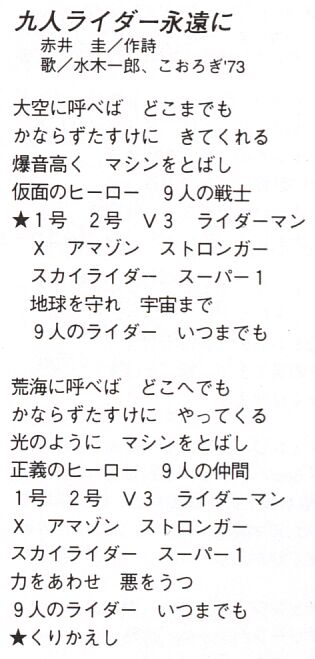 九人ライダー永遠に
赤井　圭／作詩
歌／水木一郎、こおろぎ'73
大空に呼べば　どこまでも
かならずたすけに　きてくれる
爆音高く　マシンをとばし
仮面のヒーロー　９人の戦士
★１号　２号　Ｖ３　ライダーマン
Ｘ　アマゾン　ストロンガー
スカイライダー　スーパー１
地球を守れ　宇宙まで
９人のライダー　いつまでも
荒海に呼べば　どこへでも
かならずたすけに　やってくる
光のように　マシンをとばし
正義のヒーロー　９人の仲間
１号　２号　Ｖ３　ライダーマン
Ｘ　アマゾン　ストロンガー
スカイライダー　スーパー１
力をあわせ　悪をうつ
９人のライダー　いつまでも
★くりかえし